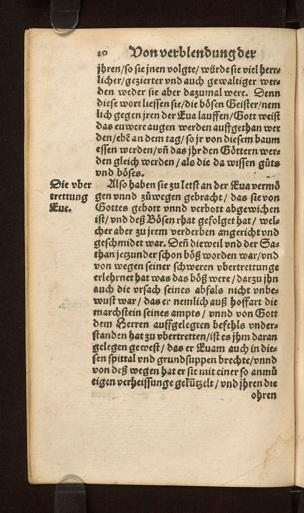 20 Von verblendung der
jhren/so sie jnen volgte/würde sie viel herr-
licher/gezierter vnd auch gewaltiger wer-
den weder sie aber dazumal were. Denn
diese wort liessen sie/die bösen Geister/nem
lich gegen jren der Eua lauffen/Gott weist
das euwere augen werden auffgethan wer
den/ebē an dem tag/so jr von diesem baum
essen werden/vñ das jhr den Göttern wer-
den gleich werden/als die da wissen güts
vnd böses.
Die vber
trettung
Eue.
Also haben sie zu letst an der Eua vermö
gen vnnd zůwegen gebracht/das sie von
Gottes gebott vnnd verbott abgewichen
ist/vnd deß Bösen rhat gefolget hat/wel-
cher aber zu jrem verderben angericht vnd
geschmidet war. Deñ dieweil vnd der Sa-
than jezunder schon böß worden war/vnd
von wegen seiner schweren vbertrettunge
erlehrnet hat was das böß were/darzu jhn
auch die vrsach seines abfals nicht vnbe-
wust war/das er nemlich auß hoffart die
marchstein seines ampts/vnnd von Gott
dem Herren auffgelegten befehls vnder-
standen hat zu vbertretten/ist es jhm daran
gelegen gewest/das er Euam auch in die-
sen spittal vnd grundsuppen brechte/vnnd
von deß wegen hat er sie mit einer so anmü
tigen verheissunge gekützelt/vnd jhren die
ohren